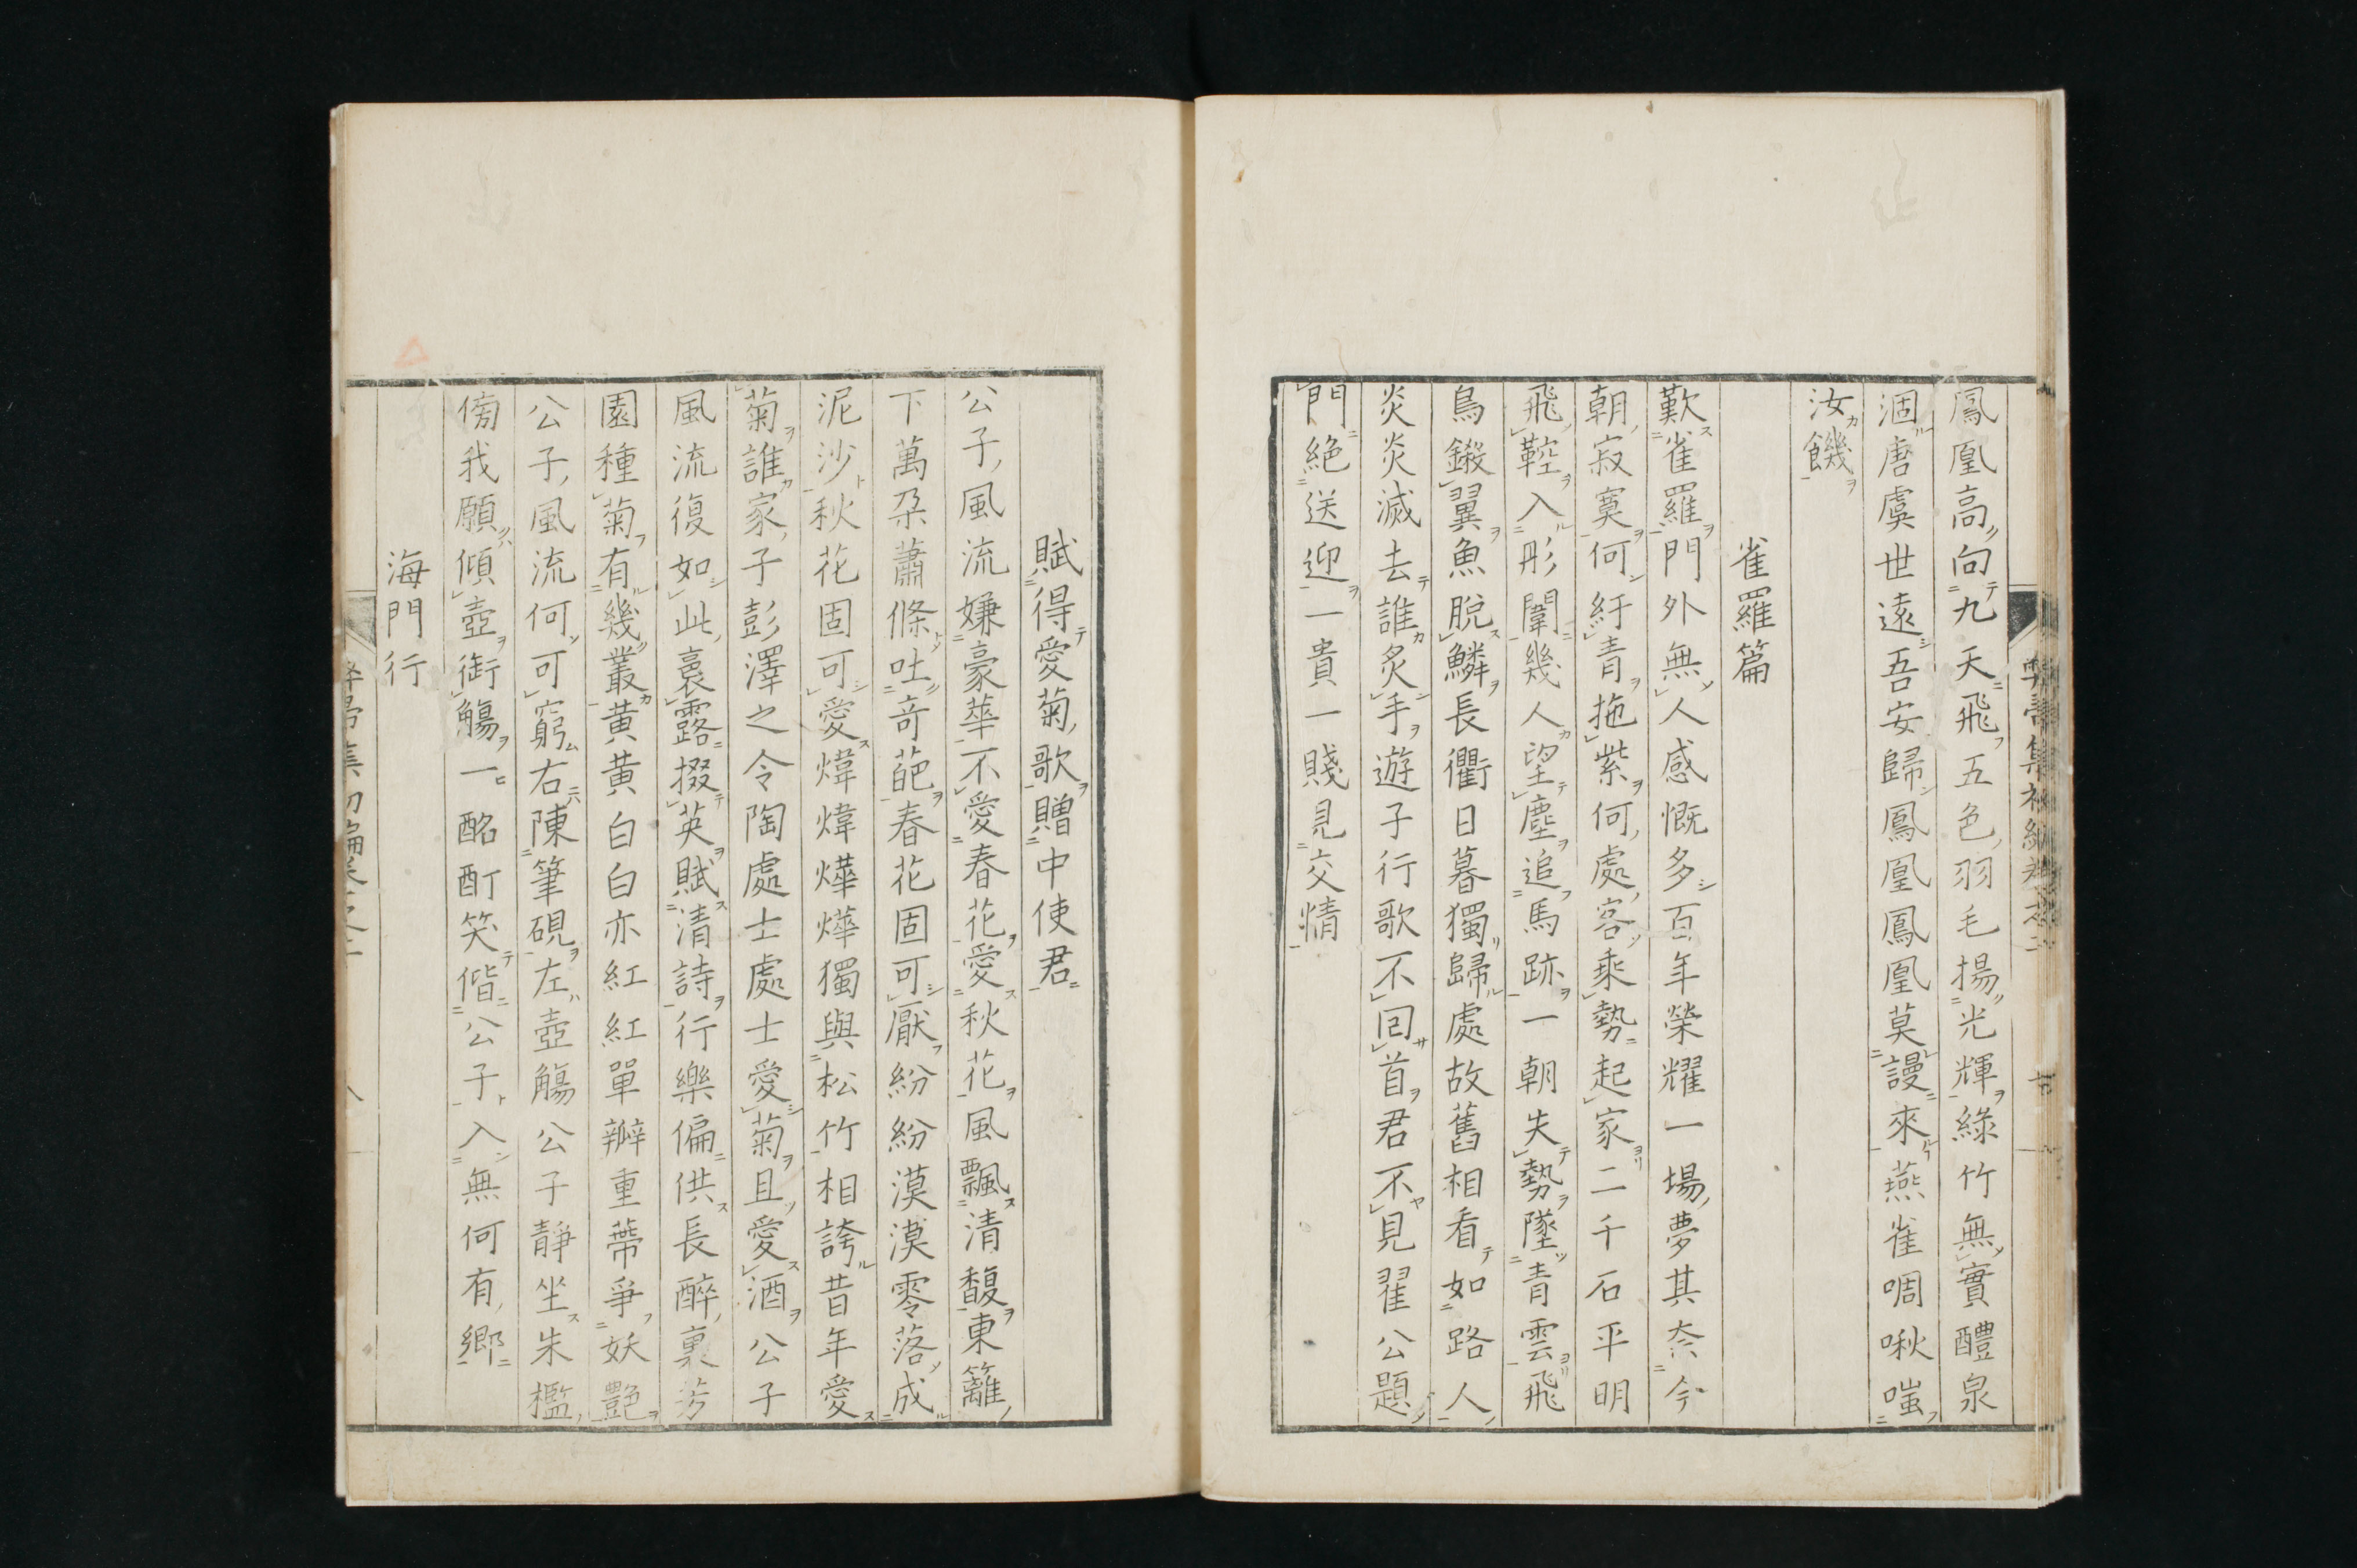 鳳凰高向九天飛五色羽毛揚光輝綠竹無實醴泉
涸唐虞世遠吾安歸鳳凰鳳凰莫謾來燕雀啁啾嗤
汝饑
雀羅篇
歎雀羅門外無人感慨多百年榮耀一場夢其奈今
朝寂寞何紆青拖紫何處客乘勢起家二千石平明
飛鞚入彤闈幾人望塵追馬跡一朝失勢墜青雲飛
鳥鎩翼魚脫鱗長衢日暮獨歸處故舊相看如路人
炎炎滅去誰炙手遊子行歌不回首君不見翟公題
門絕送迎一貴一賤見交情
賦得愛菊歌贈中使君
公子風流嫌豪華不愛春花愛秋花風飄清馥東籬
下萬朶蕭條吐奇葩春花固可厭紛紛漠漠零落成
泥沙秋花固可愛煒煒燁燁獨與松竹相誇昔年愛
菊誰家子彭澤之令陶處士處士愛菊且愛酒公子
風流復如此裛露掇英賦清詩行樂偏供長醉裏芳
園種菊有幾叢黃黃白白亦紅紅單瓣重蔕爭妖艷
公子風流何可窮右陳筆硯左壺觴公子靜坐朱檻
傍我願傾壺銜觴一酩酊笑偕公子入無何有鄉
海門行